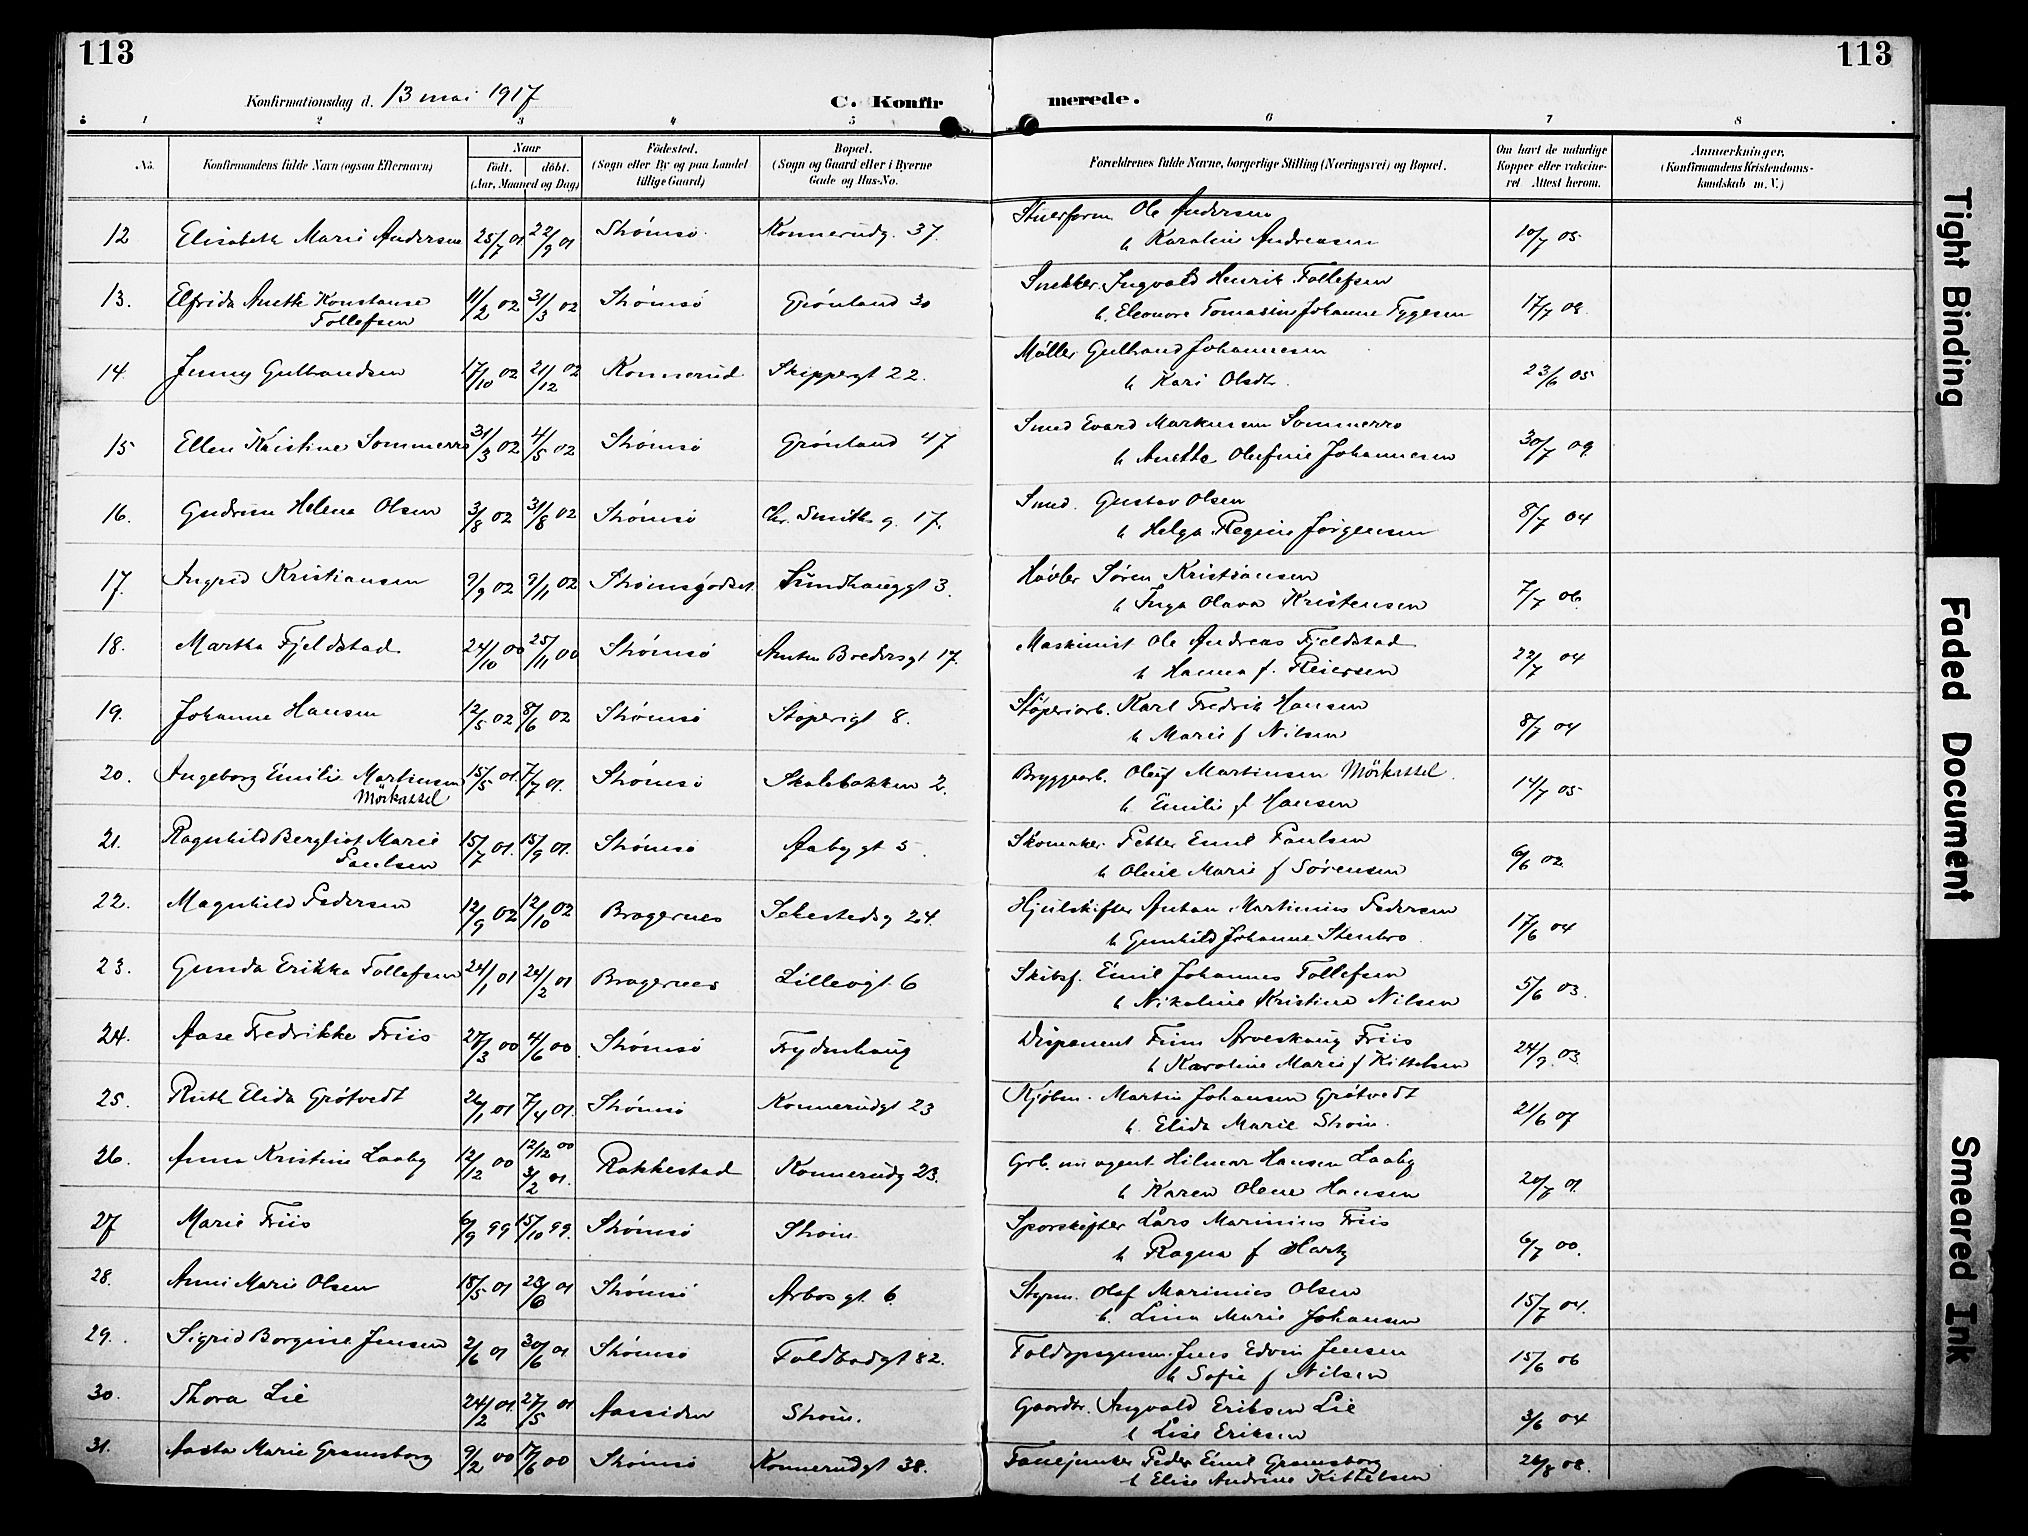 113
113
Konfirmationsdag d. 13 mai 1917
C. Konfir
merede.
1 2 3 4 5 6 7 8
No.
Konfirmandens fulde Navn (ogsaa Efternavn)
Naar
født. døbt.
(Aar, Maaned og Dag)
Fødested.
(Sogn eller By og paa Landet
tillige Gaard)
Bopæl.
(Sogn og Gaard eller i Byerne
Gade og Hus-No.
Forældrenes fulde Navne, borgerlige Stilling (Næringsvei) og Bopæl.
Om havt de naturlige
Kopper eller vakcine-
ret Attest herom.
Anmærkninger,
(Konfirmandens Kristendoms-
kundskab m. V.)
12 Elisabeth Marie Andersen 25/7 01 22/9 01 Strømsø. Konnerudg. 37. Ole Andersen 10/7 05
h Karoline Andreasen
13. Elfrida Anette Konstanse 11/2 02 31/3 02 Strømsø Grønland 30 Snekker Ingvald Henrik Tollefsen 17/7 08
Tollefsen h. Eleonore Tomasine Johanne Tygesen
14. Jenny Gulbrandsen 17/10 02 21/12 02 Konnerud Skippergt 22. Møller Gulbrand Johannesen 23/6 05
h Kari Olsdtr.
15 Ellen Kristine Sommerro 31/3 02 4/5 02 Strømsø Grønland 47 Smed Evard Markussen Sommerro 30/7 09
h Anette Olufine Johannesen
16. Gudrun Helena Olsen 3/8 02 31/8 02 Strømsø Chr. Smiths g. 17. Smed. Gustav Olsen 8/7 04
h Helga Regine Jørgensen
17. Ingrid Kristiansen 9/9 02 9/11 02 Strømsgodset Sundhauggt 3. Høvler Søren Kristiansen 7/7 06
h Inga Olava Kristensen
18. Martha Fjeldstad 24/10 00 25/11 00 Strømsø Boedersgt 17. Maskinist Ole Andreas Fjeldstad 22/7 04
h Hanna f. Reiersen
19. Johanne Hansen 12/5 02 8/6 02 Strømsø Støperigt 8. Støperiarb. Karl Fredrik Hansen 8/7 04
h Marie f Nilsen
20. Ingeborg Emilie Martinsen 15/5 01 7/7 01. Strømsø Skolebakken 2. Bryggearb. Oluf Martinsen Mörkassel. 14/7 05
Mörkassel h Emilie f Hansen
21. Ragnhild Bergliot Marie 15/7 01. 15/9 01. Strømsø Aabygt 5. Skomaker Petter Emil Paulsen 6/6 02
Paulsen h Oline Marie f Sørensen
22. Magnhild Pedersen 12/9 02 12/10 02 Bragernes Schestedsg 24. Hjulskifter Anton Martinius Pedersen 17/6 04
h Gunhild Johanne Stenbro
23. Gunda Erikka Tollefsen 24/1 01 24/2 01 Bragernes Lilleøgt. 6 Skibsf. Emil Johannes Tollefsen 5/6 03.
h Nikoline Kristine Nilsen
24. Aase Fredrikke Friis 27/3 00 4/6 00. Strømsø Frydenhaug Disponent Finn Arveskaug Friis 24/9 03
h Karoline Marie f Kittelsen
25. Ruth Elida Grøtvedt 26/1 01 7/4 01. Strømsø Konnerudgt 23 Kjøbm. Martin Johansen Grøtvedt 21/6 07
h. Elida Marie Strøm.
26. Anna Kristine Laaby 12/12 00 12/12 00 Rakkestad Konnerudg 23. Grb. nu agent Hilmar Hansen Laaby 20/7 01.
3/2 01. h Karen Olene Hansen
27 Marie Friis 6/9 99 15/10 99. Strømsø Strøm. Sporskifter Lars Marinius Friis 6/7 00.
h Ragna f Hartz
28. Anni Marie Olsen 18/5 01 28/6 01 Strømsø Arbosgt. 6. Styrm. Olaf Marinius Olsen 15/7 04.
h. Lina Marie Johansen
29. Sigrid Borgine Jensen 2/6 01 30/6 01. Strømsø Toldbodgt 82. Toldopsynsm. Jens Edvin Jensen 15/6 06
h Sofie f Nilsen
30. Thora Lie 24/2 01. 27/5 01 Aassiden Strøm. Gaardbr. Ingvald Eriksen Lie 3/6 04
h Lise Eriksen
31. Aasta Marie Gramsborg 9/2 00 17/6 00 Strømsø Konnerudgt 38. Fanejunker Peder Emil Gramsborg 26/8 08.
h Elise Andrine Kittelsen
Tight Binding
Faded Document
Smeared Ink